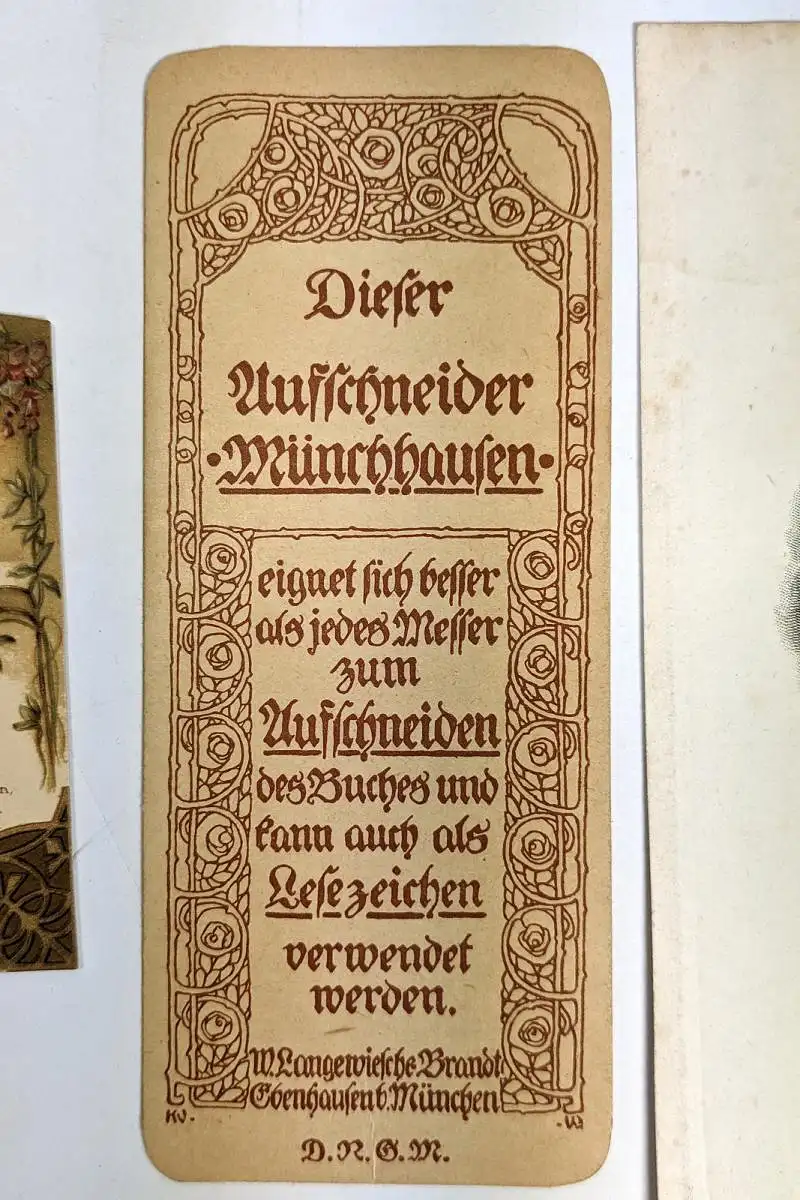 Dieser
Aufschneider
·Münchhausen·
eignet sich besser
als jedes Messer
zum
Aufschneiden
des Buches und
kann auch als
Lesezeichen
verwendet
werden.
W. Langewiesche-Brandt
Ebenhausen b. München
D. R. G. M.
n,